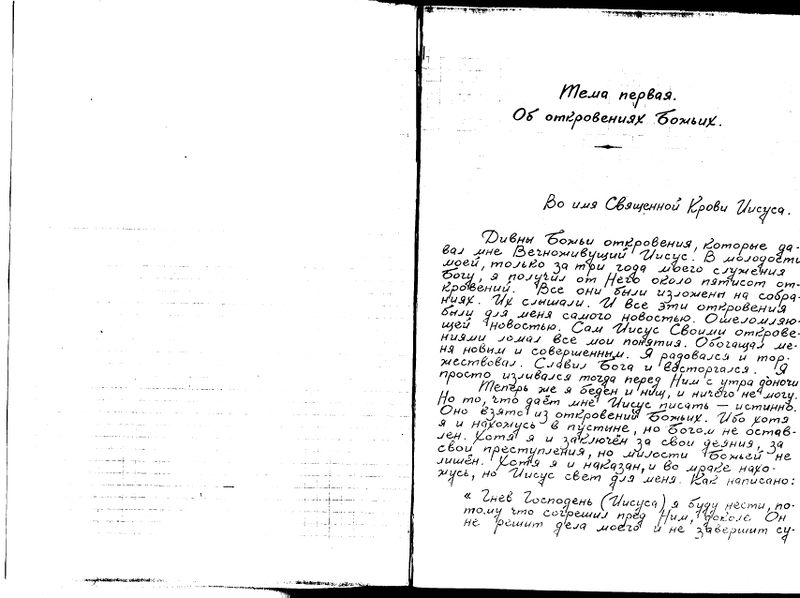 Тема первая.
Об откровениях Божьих.
Во имя Священной Крови Иисуса.
Дивны Божьи откровения, которые да-
вал мне Вечноживущий Иисус. В молодости
моей, только за три года моего служения
Богу, я получил от Него около пятисот от-
кровений. Все они были изложены на собра-
ниях. Их слышали. И все эти откровения
были для меня самого новостью. Ошеломляю-
щей новостью. Сам Иисус Своими открове-
ниями ломал все мои понятия. Обогащал ме-
ня новым и совершенным. Я радовался и тор-
жествовал. Славил Бога и восторгался. Я
просто изливался тогда перед Ним с утра до ночи.
Теперь же я беден и нищ, и ничего не могу.
Но то, что даёт мне Иисус писать — истинно.
Оно взято из откровений Божьих. Ибо хотя
я и нахожусь в пустыне, но Богом не остав-
лен. Хотя я и заключён за свои деяния, за
свои преступления, но милости Божьей не
лишён. Хотя я и наказан, и во мраке нахо-
жусь, но Иисус свет для меня. Как написано:
« Гнев Господень (Иисуса) я буду нести, по-
тому что согрешил пред Ним, доколе Он
не решит дела моего и не завершит су-